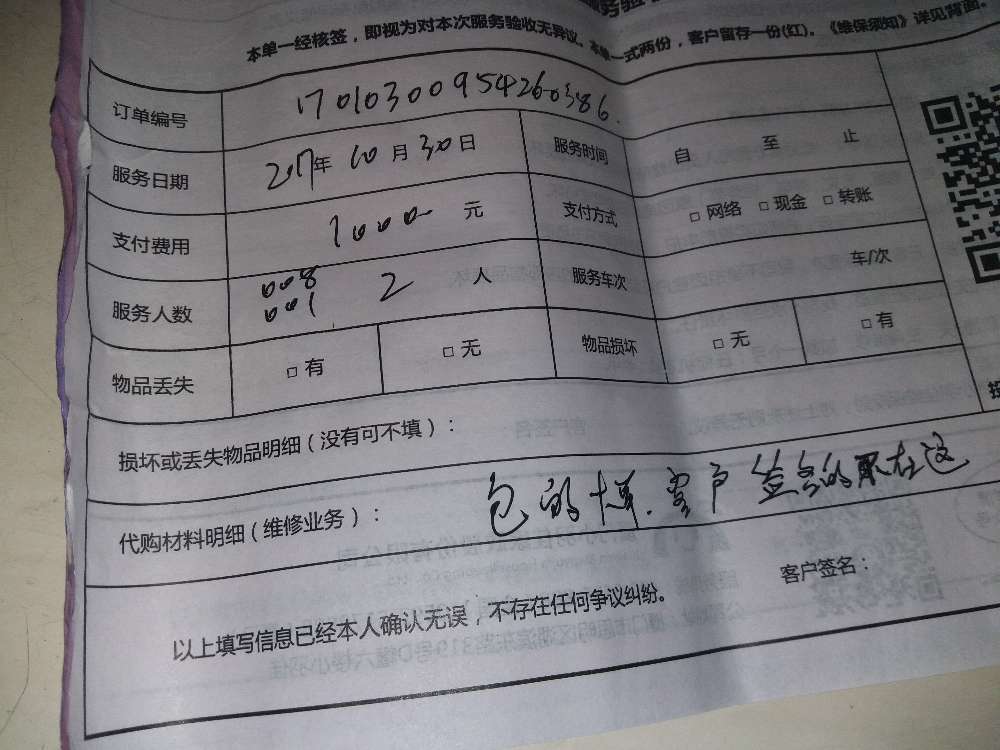 本单一经核签，即视为对本次服务验收无异议。本单一式两份，客户留存一份(红)。《维保须知》详见背面。
订单编号 17010300954260386.
服务日期 2017年10月30日 服务时间 自 至 止
支付费用 1000 元 支付方式 □ 网络 □ 现金 □ 转账
服务人数 008 001 2 人 服务车次 车/次
物品丢失 □ 有 □ 无 物品损坏 □ 无 □ 有
损坏或丢失物品明细（没有可不填）：
代购材料明细（维修业务）： 包的 客户签名的不在这
客户签名：
以上填写信息已经本人确认无误，不存在任何争议纠纷。